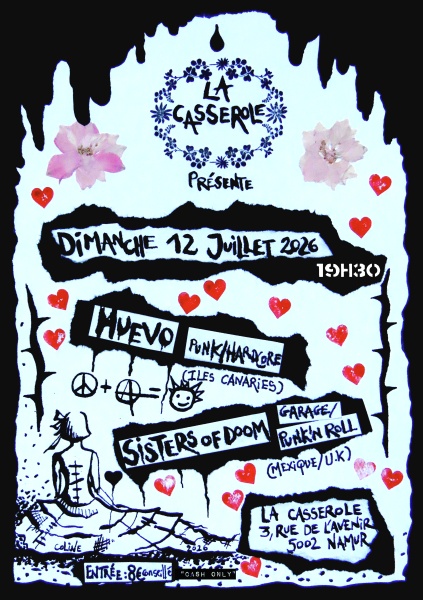 LA
CASSEROLE
PRÉSENTE
DIMANCHE 12 JUILLET 2026
19H30
HUEVO
PUNK/HARDCORE
(ILES CANARIES)
SISTERS OF DOOM
GARAGE/
PUNK'N ROLL
(MEXIQUE/U.K)
LA CASSEROLE
3, RUE DE L'AVENIR
5002 NAMUR
COLINE 2026
ENTRÉE: 8€ conseillé "CASH ONLY"